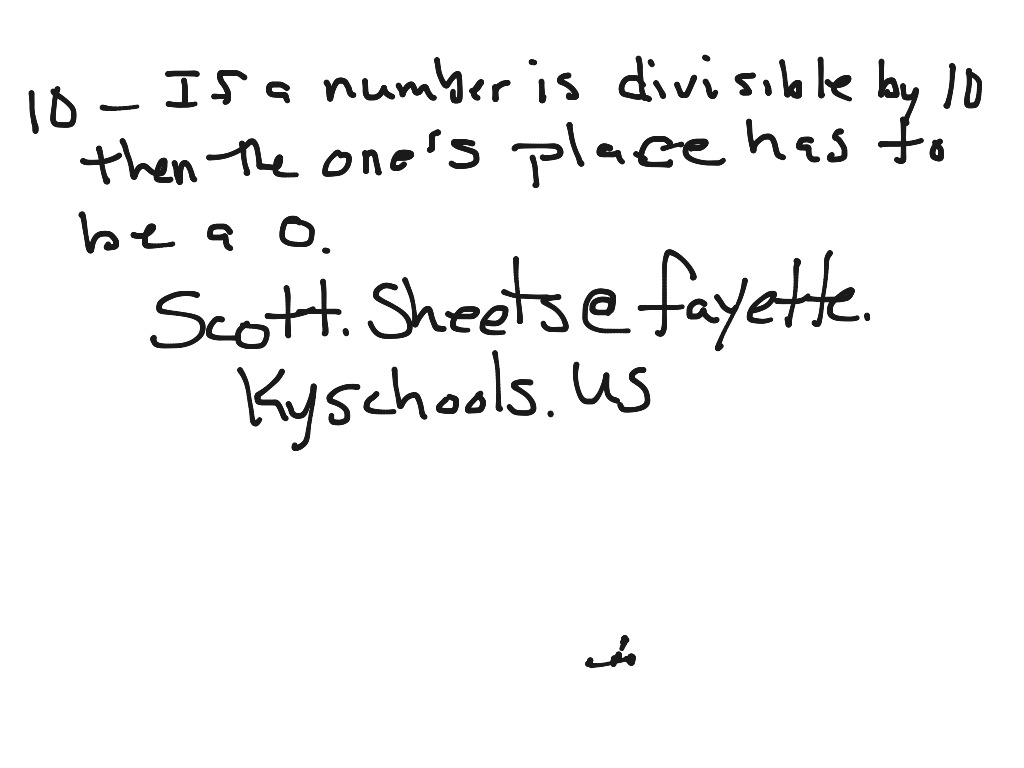 10 - If a number is divisible by 10
then the one's place has to
be a 0.
Scott.Sheets@fayette.
Kyschools.us